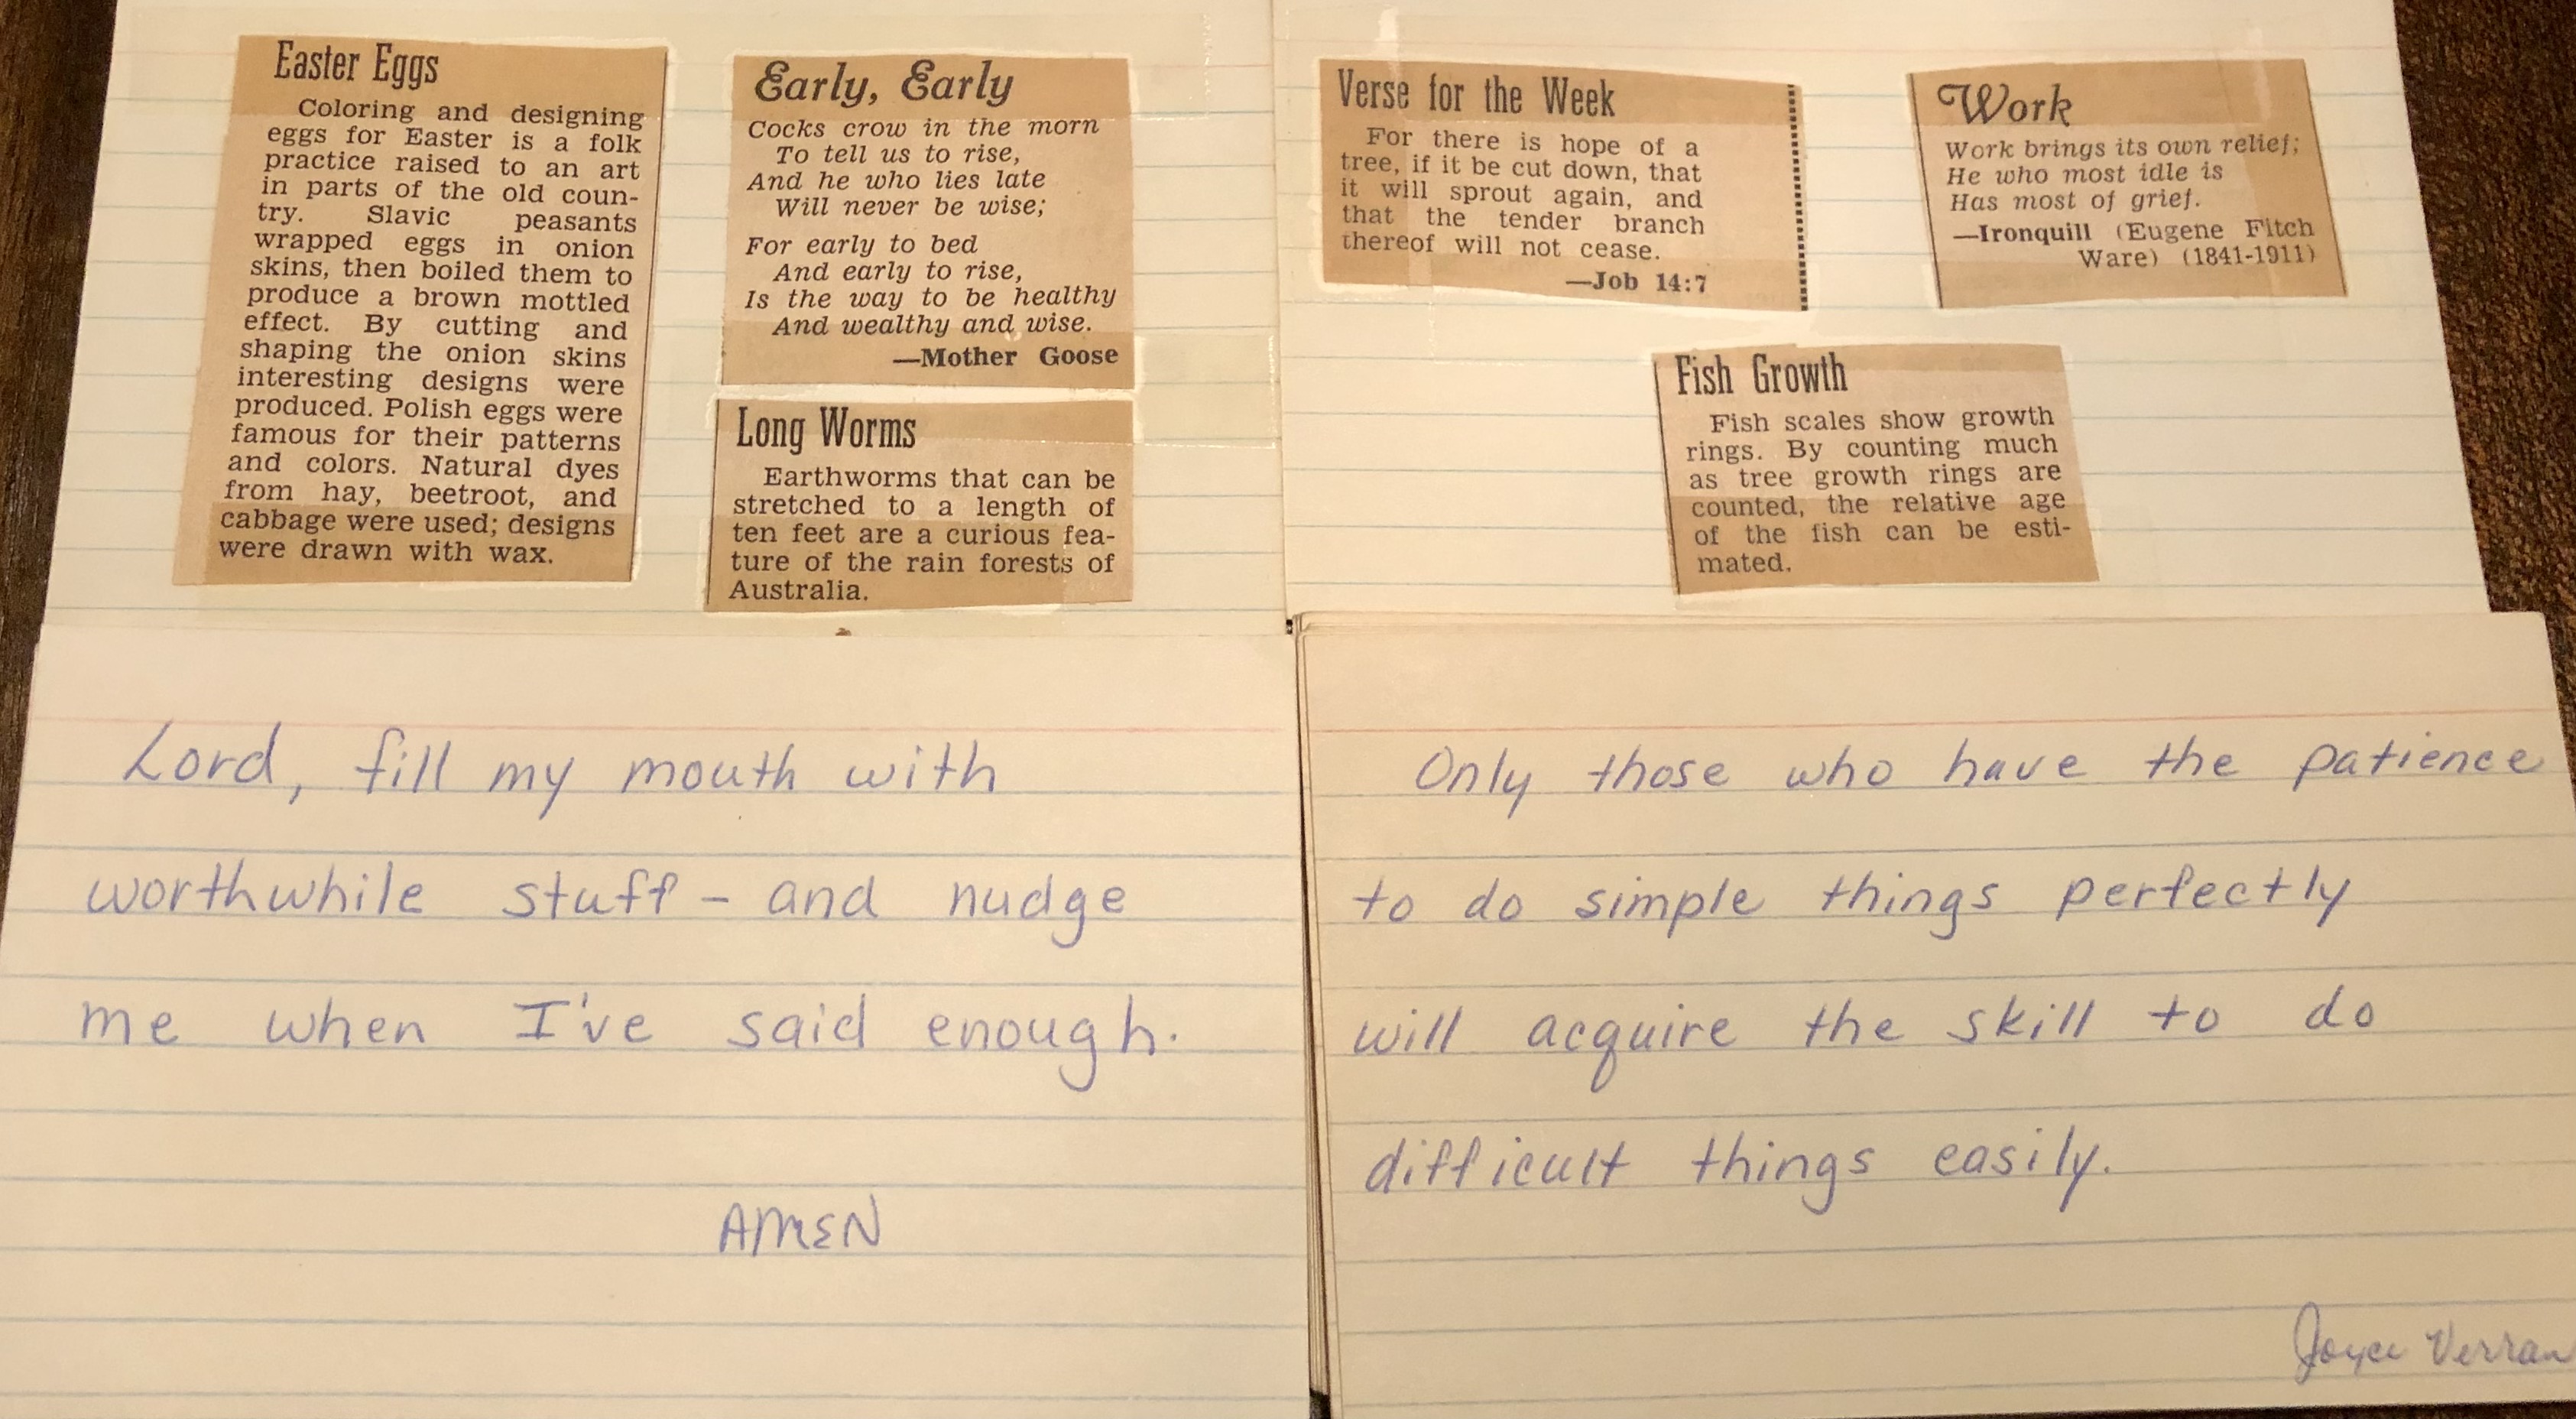 Easter Eggs
Coloring and designing
eggs for Easter is a folk
practice raised to an art
in parts of the old coun-
try. Slavic peasants
wrapped eggs in onion
skins, then boiled them to
produce a brown mottled
effect. By cutting and
shaping the onion skins
interesting designs were
produced. Polish eggs were
famous for their patterns
and colors. Natural dyes
from hay, beetroot, and
cabbage were used; designs
were drawn with wax.
Early, Early
Cocks crow in the morn
To tell us to rise,
And he who lies late
Will never be wise;
For early to bed
And early to rise,
Is the way to be healthy
And wealthy and wise.
—Mother Goose
Long Worms
Earthworms that can be
stretched to a length of
ten feet are a curious fea-
ture of the rain forests of
Australia.
Verse for the Week
For there is hope of a
tree, if it be cut down, that
it will sprout again, and
that the tender branch
thereof will not cease.
—Job 14:7
Work
Work brings its own relief;
He who most idle is
Has most of grief.
—Ironquill (Eugene Fitch
Ware) (1841-1911)
Fish Growth
Fish scales show growth
rings. By counting much
as tree growth rings are
counted, the relative age
of the fish can be esti-
mated.
Lord, fill my mouth with
worthwhile stuff - and nudge
me when I've said enough.
AMEN
Only those who have the patience
to do simple things perfectly
will acquire the skill to do
difficult things easily.
Joyce Verran